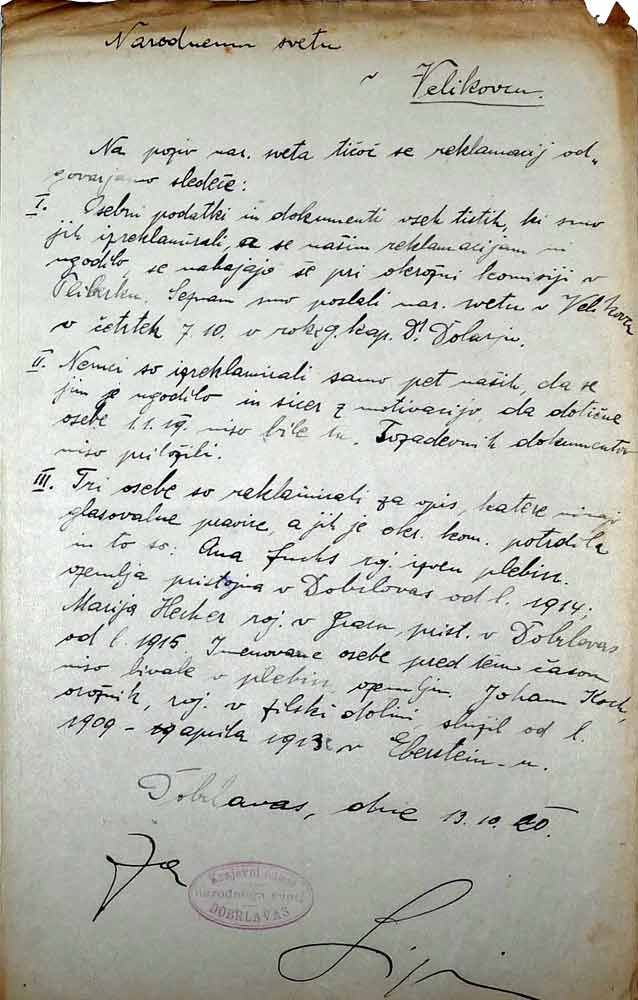 Narodnemu svetu
v Velikovcu.
Na poziv nar. sveta tičoč se reklamacij od-
govarjamo sledeče:
I. Osebni podatki in dokumenti vseh tistih, ki smo
jih izreklamirali, a se našim reklamacijam ni
ugodilo, se nahajajo še pri okrožni komisiji v
Pliberku. Seznam smo poslali nar. svetu v Velikovcu
v četrtek 7.10. v roke g. kap. Dr
II. Nemci so izreklamirali samo pet naših, da se
jim je ugodilo in sicer z motivacijo, da dotične
osebe 1.1.19. niso bile tu. Tozadevnih dokumentov
niso priložili.
III. Tri osebe so reklamirali za vpis, katere nimajo
glasovalne pravice, a jih je okr. kom. potrdila
in to so: Ana Fuchs roj. izven plebisc.
ozemlja pristojna v Dobrlovas od l. 1914;
Marija Hecher roj. v prist. v Dobrlovas
od l. 1915. Imenovane osebe pred tem časom
niso bivale v plebisc. ozemlju. Johann Koch,
orožnik, roj. v Zilski dolini, služil od l.
1909 - 19 aprila 1913 v Eberstein-u.
Dobrlavas, dne 13.10.20.
Za
Krajevni odbor
narodnega sveta
DOBRLAVAS